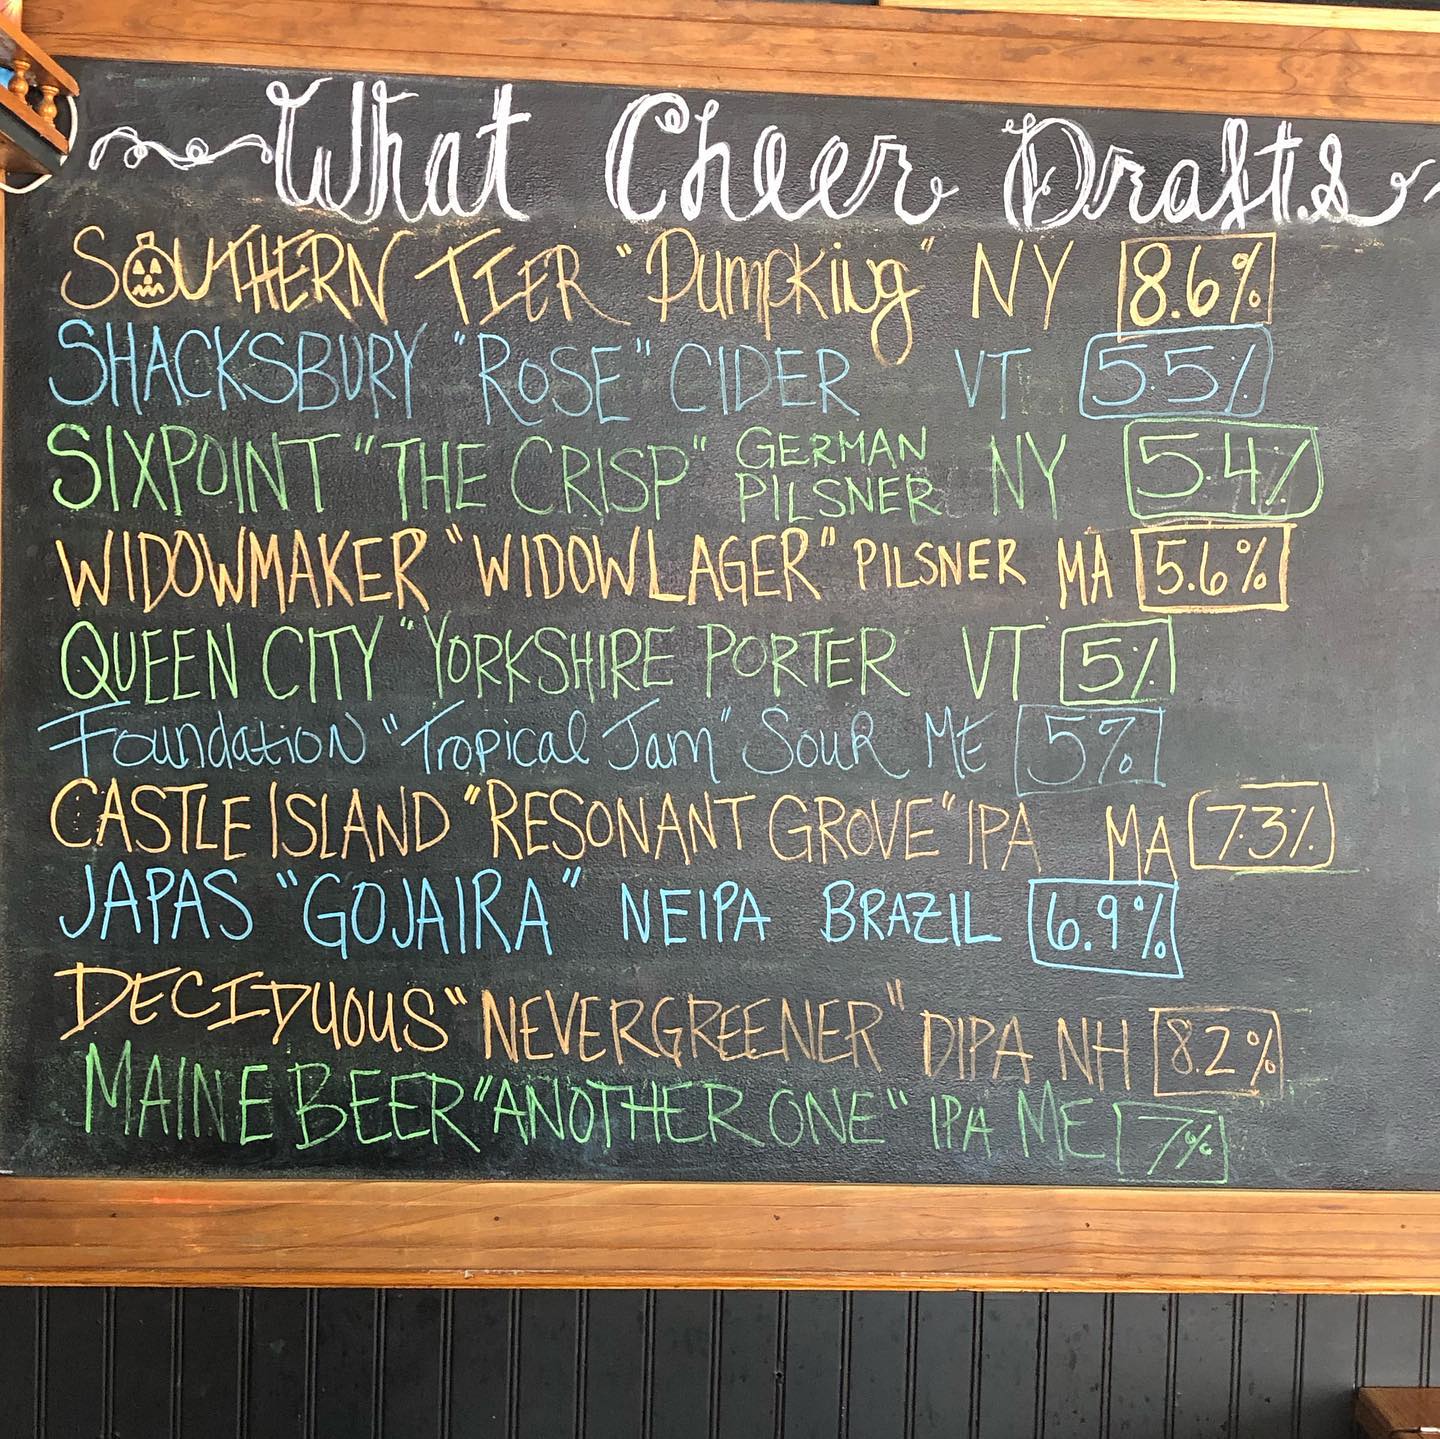 What Cheer Drafts
SOUTHERN TIER "Pumpking" NY 8.6%
SHACKSBURY "ROSE" CIDER VT 5.5%
SIXPOINT "THE CRISP" GERMAN PILSNER NY 5.4%
WIDOWMAKER "WIDOWLAGER" PILSNER MA 5.6%
QUEEN CITY "YORKSHIRE PORTER VT 5%
Foundation "Tropical Jam" Sour ME 5%
CASTLE ISLAND "RESONANT GROVE" IPA MA 7.3%
JAPAS "GOJAIRA" NEIPA BRAZIL 6.9%
DECIDUOUS "NEVERGREENER" DIPA NH 8.2%
MAINE BEER "ANOTHER ONE" IPA ME 7%